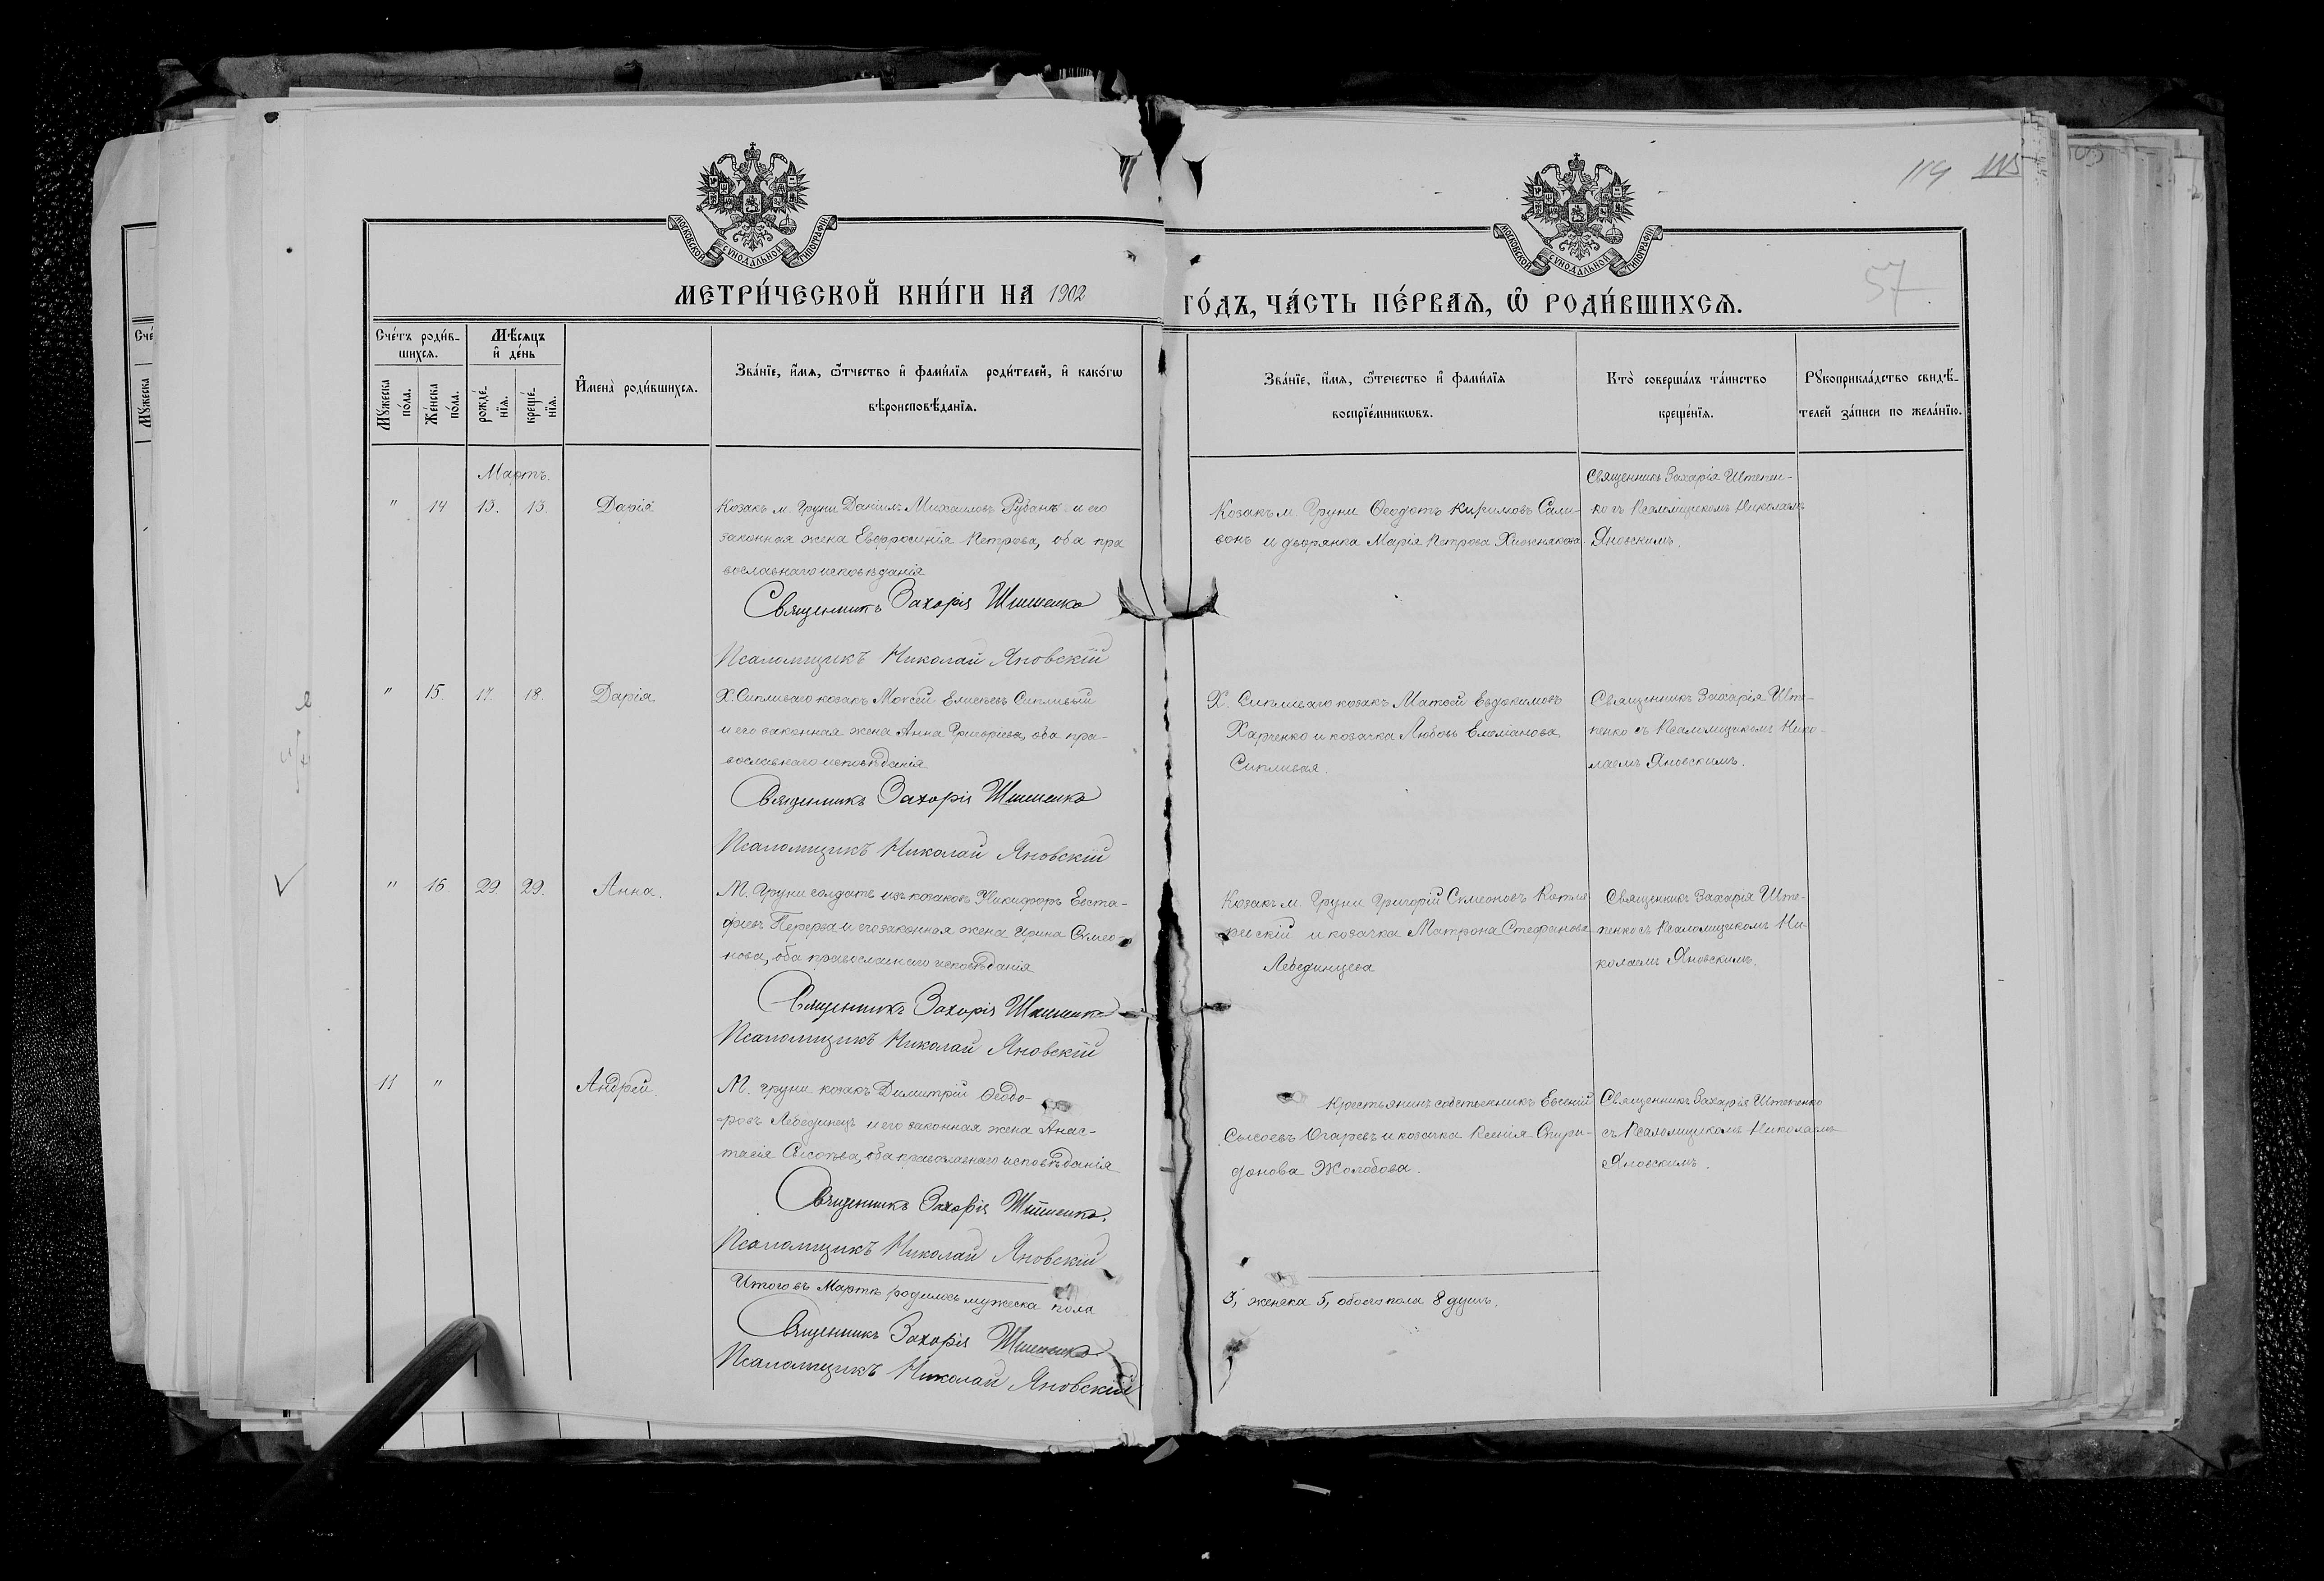 114 115
57
МОСКОВСКОЙ СѴНОДАЛЬНОЙ ТИПОГРАФІИ
МОСКОВСКОЙ СѴНОДАЛЬНОЙ ТИПОГРАФІИ
МЕТРИ́ЧЕСКОЙ КНИ́ГИ НА 1902
ГО́ДЪ, ЧА́СТЬ ПЕ́РВАѦ, Ѽ РОДИ́ВШИХСѦ.
Сче́тъ роди́в-
шихсѧ.
Мꙋ́жеска
по́ла.
Же́нска
по́ла.
Мѣ́сѧцъ
и҆ де́нь
рожде́-
нїѧ.
креще́-
нїѧ.
И҆мена̀ роди́вшихсѧ.
Зва́нїе, и҆́мѧ, ѻ҆́тчество и҆ фами́лїѧ роди́телей, и҆ како́гѡ
вѣроисповѣ́данїѧ.
Зва́нїе, и҆́мѧ, ѻ҆те́чество и҆ фами́лїѧ
воспрїе́мникѡвъ.
Кто̀ соверша́лъ та́инство
креще́нїѧ.
Рꙋкоприкла́дство свидѣ́-
телей за́писи по жела́нїю.
Мартъ.
" 14 13. 13. Дарія
Козакъ м. Груни Даніилъ Михаиловъ Рубанъ и его
законная жена Евфросинія Петрова, оба пра
вославнаго исповѣданія
Священникъ Захарія Штепенко
Псаломщикъ Николай Яновскій
Козакъ м. Груни Ѳеодотъ Кириловъ Сали-
вонъ и дворянка Марія Петрова
Священникъ Захарія Штепен-
ко съ Псаломщикомъ Николаемъ
Яновскимъ.
" 15. 17. 18. Дарія
Х. Сипливаго козакъ Моѵсей Елисеевъ Сипливый
и его законная жена Анна Григоріева, оба пра-
вославнаго исповѣданія
Священникъ Захарія Штепенко
Псаломщикъ Николай Яновскій
Х. Сипливаго козакъ Матѳей Евдокимовъ
Харченко и козачка Любовь Емеліанова
Сипливая.
Священникъ Захарія Ште-
пенко съ Псаломщикомъ Нико-
лаемъ Яновскимъ.
" 16. 29. 29. Анна.
М. Груни солдатъ изъ козаковъ Никифоръ Евста-
фіевъ Перерва и его законная жена Ирина Симео-
нова, оба православнаго исповѣданія
Священникъ Захарія Штепенко
Псаломщикъ Николай Яновскій
Козакъ м. Груни Григорій Симеоновъ Котля
ревскій и козачка Матрона Стефанова
Лебединцева
Священникъ Захарія Ште-
пенко съ Псаломщикомъ Ни-
колаемъ Яновскимъ.
11 " Андрей.
М. Груни козакъ Димитрій Ѳеодо-
ровъ Лебединецъ и его законная жена Анас-
тасія Сысоева, оба православнаго исповѣданія
Священникъ Захарія Штепенко.
Псаломщикъ Николай Яновскій
Крестьянинъ собственникъ Евсеній
Сысоевъ Огаревъ и козачка Ксенія Спири-
донова Жолобова.
Священникъ Захарія Штепенко
съ Псаломщикомъ Николаемъ
Яновскимъ.
Итого въ Мартѣ родилось мужеска пола
3, женска 5, обоего пола 8 душъ.
Священникъ Захарія Штепенко
Псаломщикъ Николай Яновскій